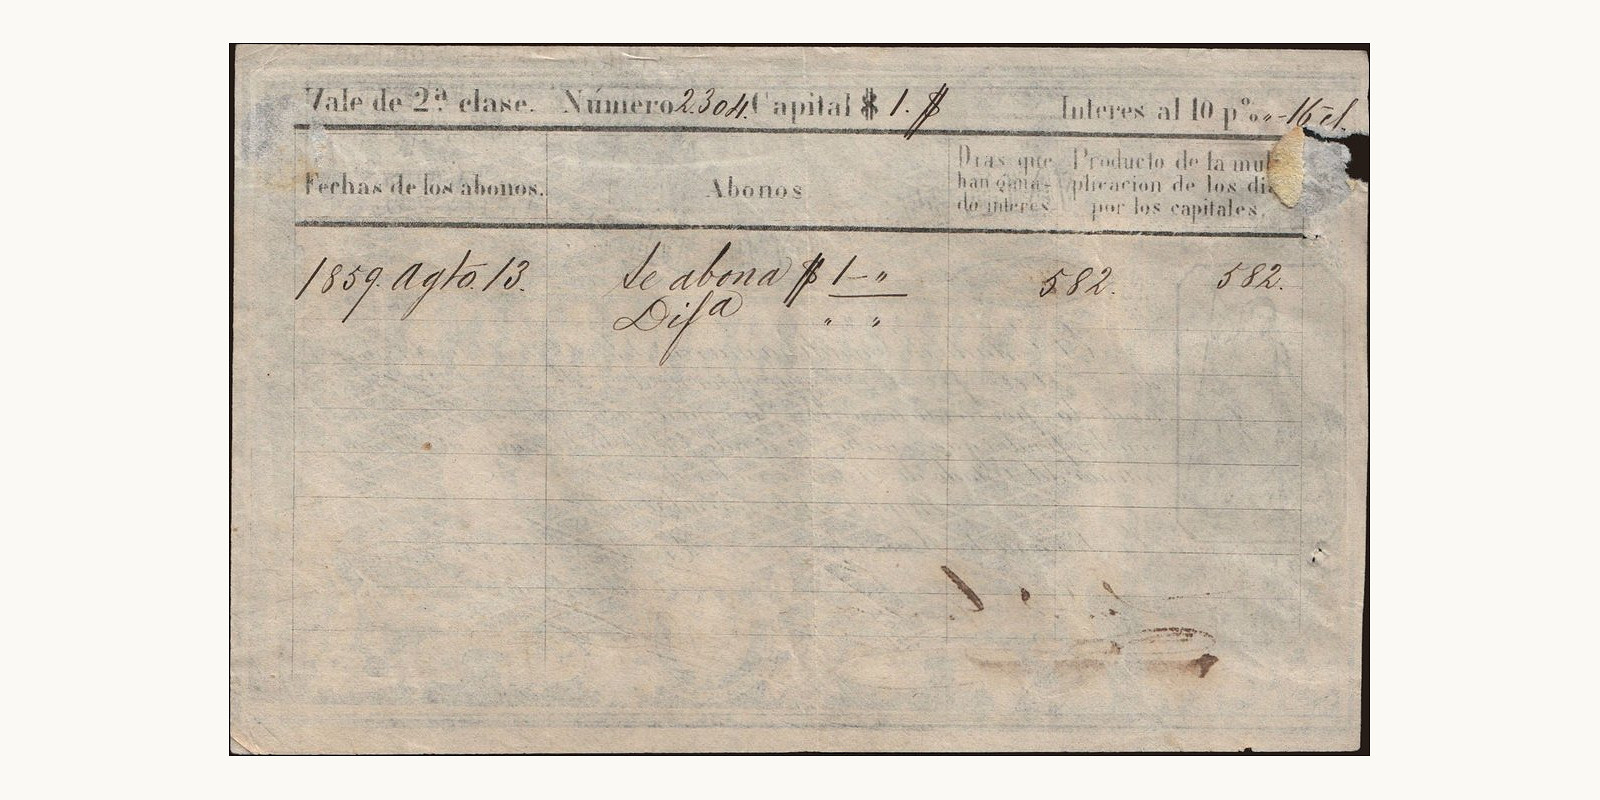 Vale de 2ª clase. Número 2304. Capital $ 1. $ Interes al 10 p% „ -16 cl.
Fechas de los abonos.
Abonos
Dias que
han gana-
do interes
Producto de la mul
plicacion de los di
por los capitales.
1859. Agto. 13. Se abona $ 1 - „ 582. 582.
Difª „ „